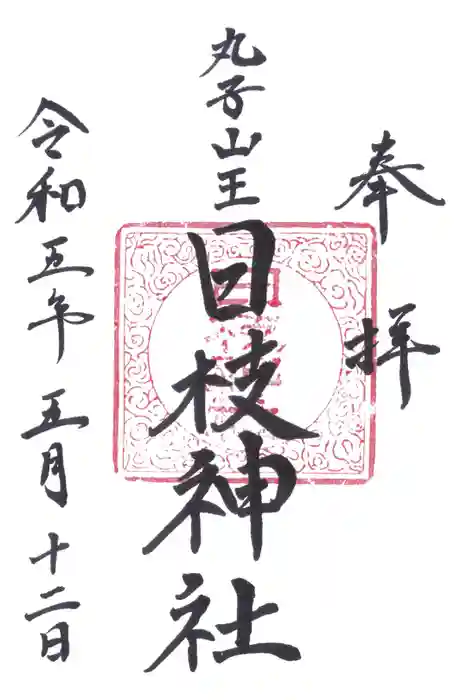 奉拝
丸子山王
日枝神社
令和五年五月十二日